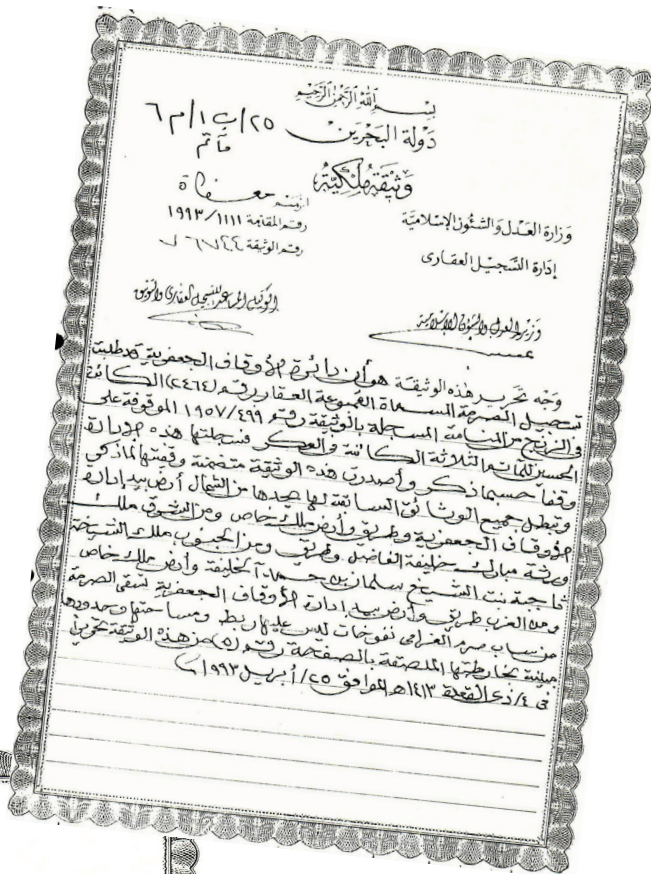 بسم الله الرحمن الرحيم
دولة البحرين
٢٥/ب/١/م ٦
مأتم
وثيقة ملكية
وزارة العدل والشئون الإسلامية
إدارة التسجيل العقاري
معفاة
رقم المقدمة ١١١١/١٩٩٣
رقم الوثيقة
وزير العدل والشئون الإسلامية
الوكيل المساعد للتسجيل العقاري والتوثيق
وجه تحرير هذه الوثيقة هو أن دائرة الأوقاف الجعفرية قد طلبت
تسجيل الصرمة المسماة القموعة العقار رقم (٢٤٦٤) الكائنة
في الزنج من المنامة المسجلة بالوثيقة رقم ٤٩٩/١٩٥٧ الموقوفة على
الحسين للمآتم الثلاثة الكائنة والعكر فسجلتها هذه الإدارة
وقفاً حسبما ذكر وأصدرت هذه الوثيقة متضمنة وقفيتها لما ذكر
وتبطل جميع الوثائق السابقة لها يحدها من الشمال أرض بيد إدارة
الأوقاف الجعفرية وطريق وأرض ملك خاص ومن الشرق ملك
ورثة مبارك خليفة الفاضل وطريق ومن الجنوب ملك الشيخة
بنت الشيخ سلمان بن حمد آل خليفة وأرض ملك خاص
ومن الغرب طريق وأرض بيد إدارة الأوقاف الجعفرية تسقى الصرمة
من ساب نفوخات ليس عليها ربط ومساحتها وحدودها
مبينة بخارطتها الملصقة بالصفحة رقم (٥) من هذه الوثيقة تحريراً
في ٤/ذي القعدة ١٤١٣هـ الموافق ٢٥/أبريل ١٩٩٣م